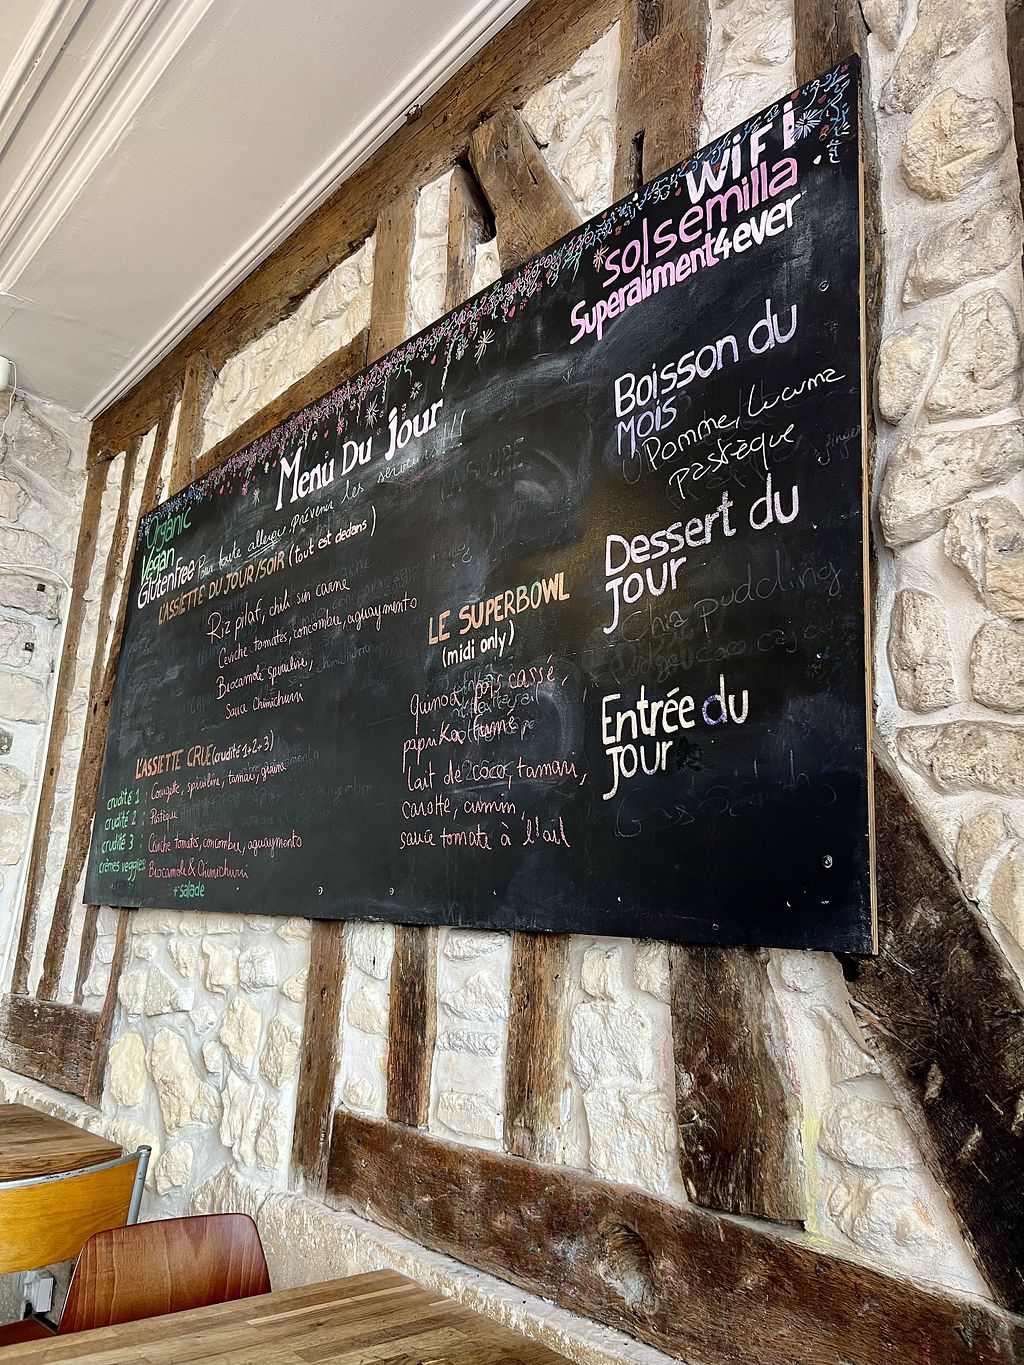 WiFi
sol semilla
Superaliment4ever
Menu Du jour
Organic
Vegan
GlutenFree
Pour toute allergie prévenir les serveurs !!!
L'ASSIETTE DU JOUR/SOIR (tout est dedans)
Riz pilaf, chili sin carne
Ceviche tomates, concombre, aguaymanto
Brocamole spiruline,
Sauce Chimichurri
L'ASSIETTE CRUE (crudité 1+2+3)
crudité 1 : Courgette, spiruline, tamari, graine
crudité 2 : Pastèque
crudité 3 : Ceviche tomates, concombre, aguaymanto
crèmes veggies Brocamole & Chimichurri
+salade
LE SUPERBOWL
(midi only)
quinoa, pois cassé,
paprika fumé,
lait de coco, tamari,
carotte, cumin,
sauce tomate à l'ail
Boisson du
MOIS
Pomme, Lucuma
pastèque
Dessert du
jour
Chia pudding
Entrée du
jour